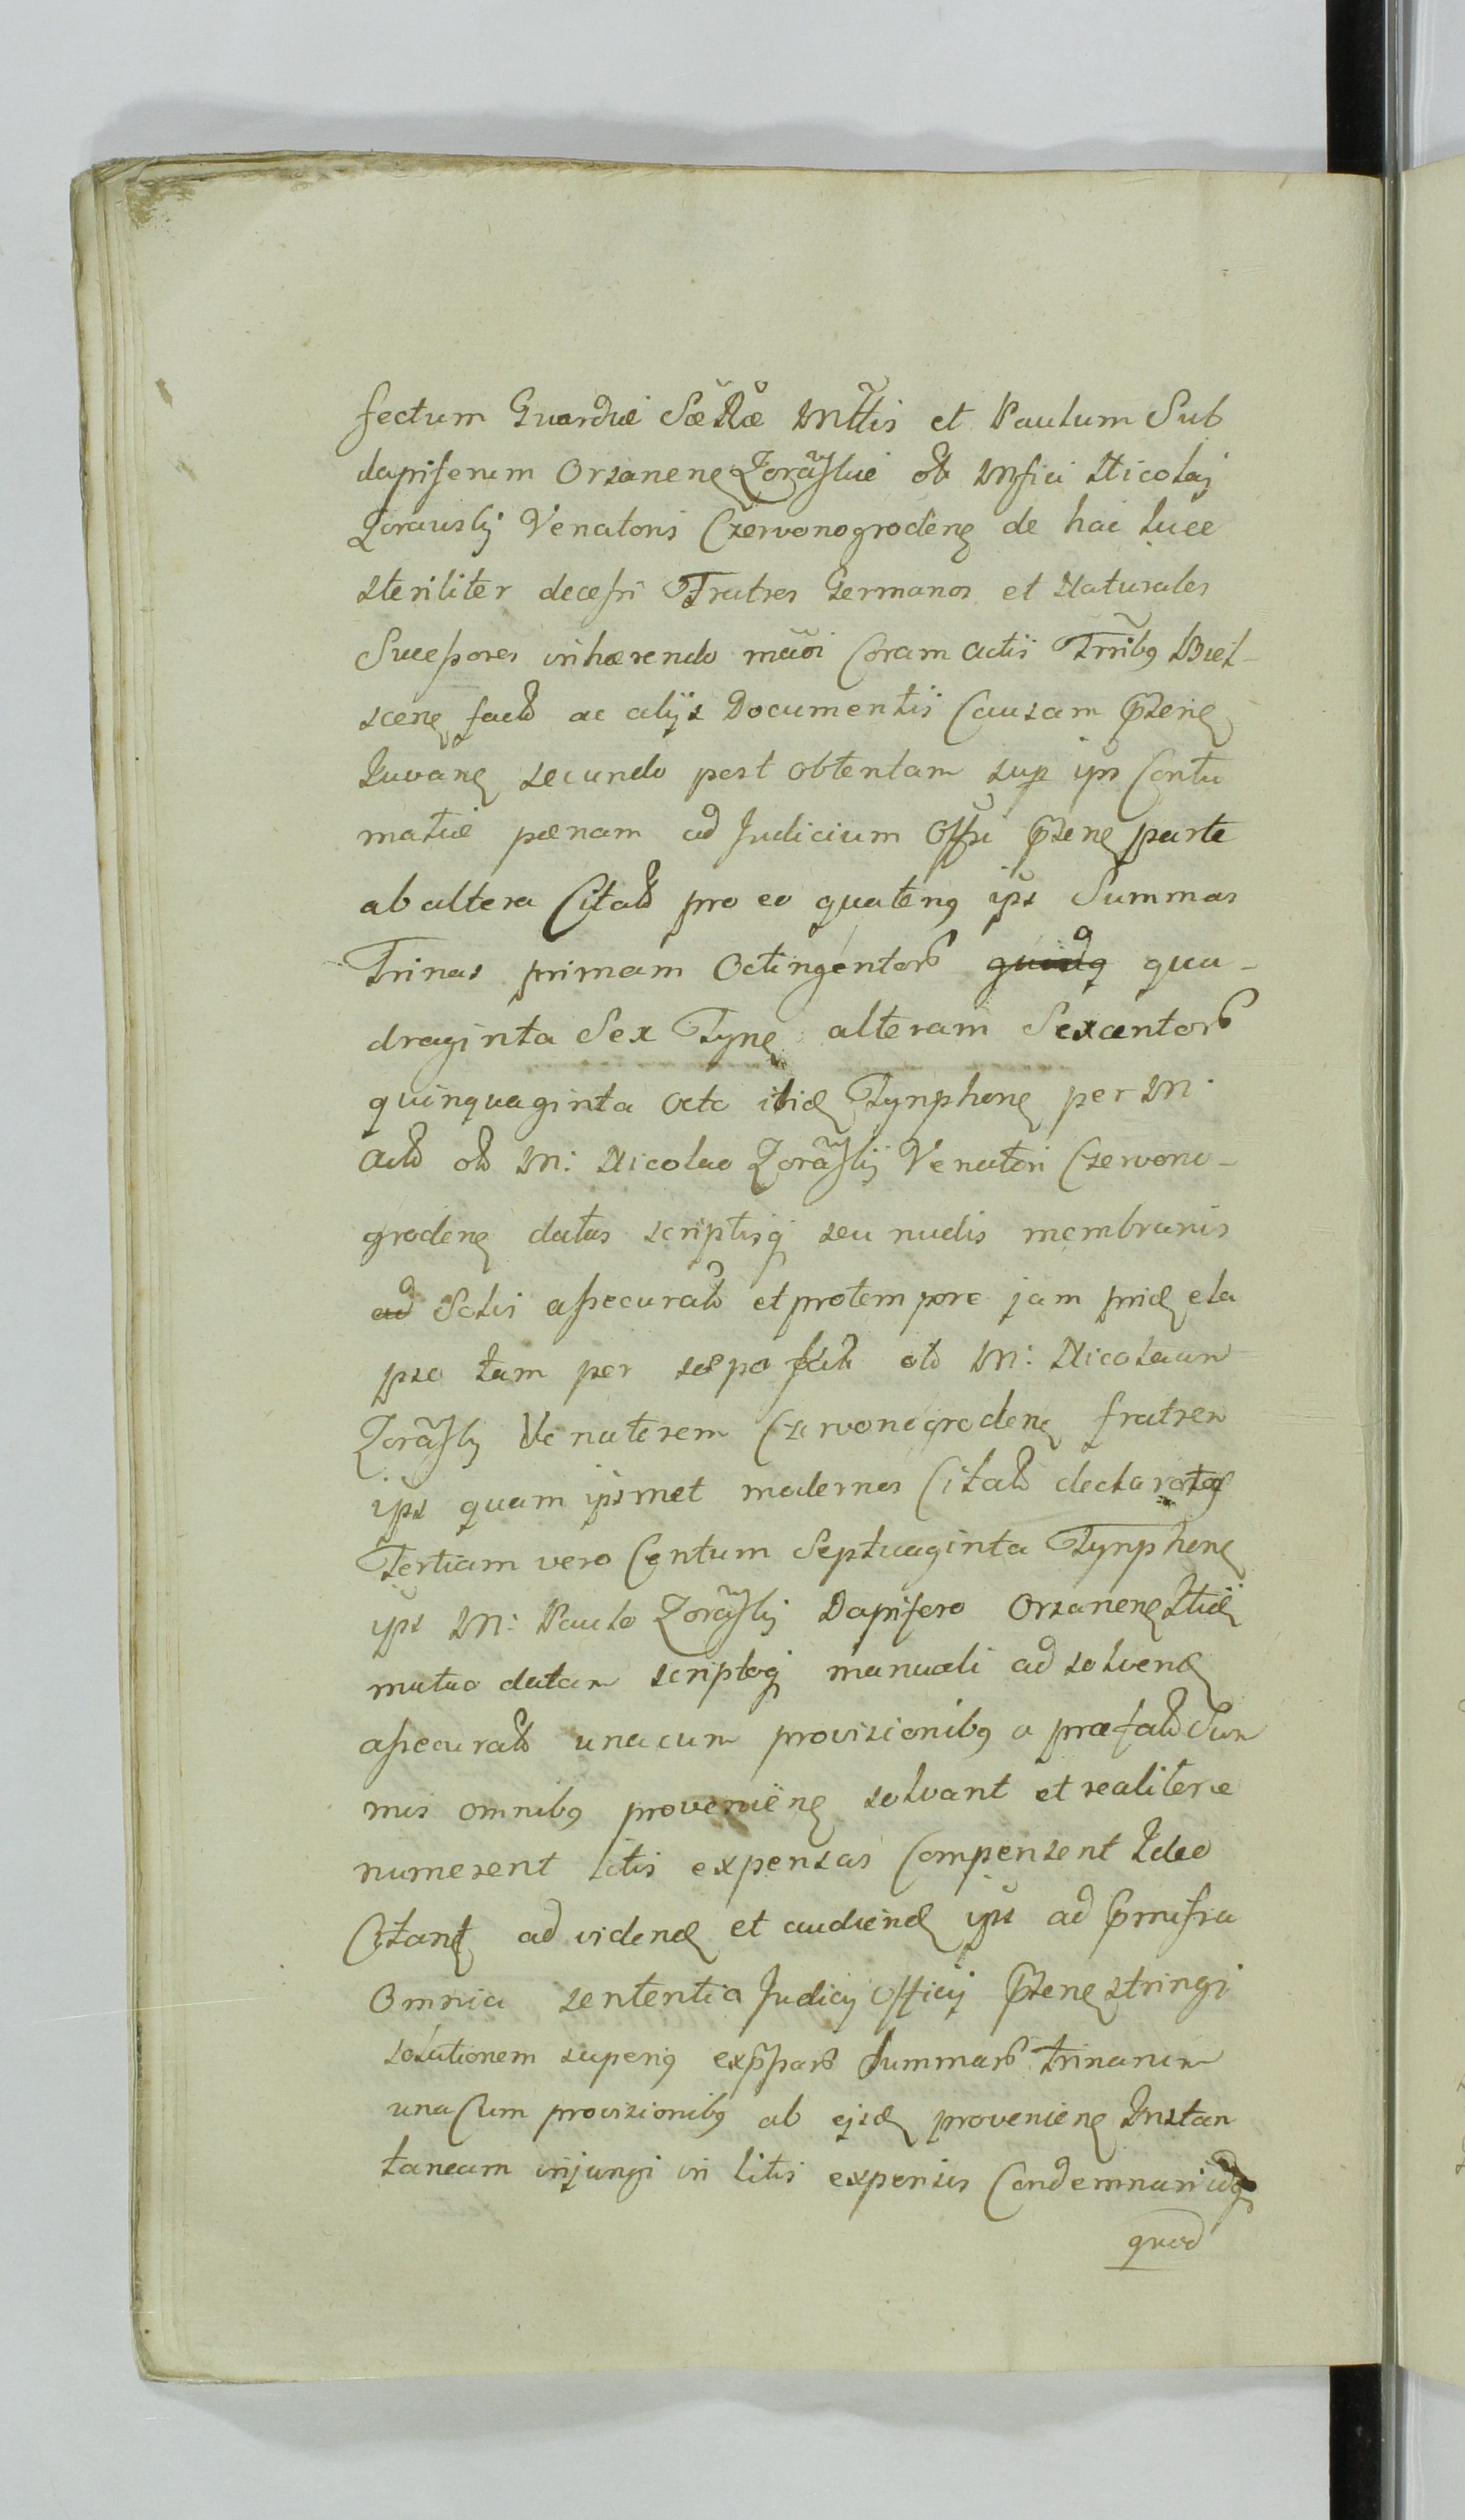 fectum Guardiæ Sæ Ræ Mttis et Paulum Sub
dapiferum Orsanen Zorãskie ol Mfici Nicolaj
Zorawskij Venatoris Czervonogroden de hac luce
steriliter decessi Fratres Germanos et Naturales
Successores inhærendo mãoi Coram actis Trribq Biel-
scen fact ac alijs Documentis Causam pñsen
Iuvãn secundo post obtentam sup ips Contu
matiæ pænam ad Judicium Offii pñsen parte
ab altera Citat pro eo quatenq ips Summas
Trinas primam Octingentor quinq qua-
draginta Sex Tyn alteram Sexcentor
quinquaginta octo itid Tynphon per M:
Act ol M: Nicolao Zorãskij Venatori Czervono-
groden datas scriptisq seu nudis membranis
ad Solis assecurat et pro tempore jam prid ela
pso tam per ol M: Nicolaum
Zorãskij Venatorem Czervonogroden fratrem
ips quam ipsmet modernos Citat declaratas
Tertiam vero Centum Septuaginta Tynphon
ips M: Paulo Zorãskij Dapifero Orsanen
mutuo datam scriptoq manuali ad solvend
assecurat una cum provisionibq a præfat Sum
mis omnibq provenien solvant et realiter e
numerent litis expensas Compensent Ideo
Citant ad vidend et audiend ips ad pmissa
Omnia sententia Judicij Officij pñsen stringi
solutionem superiq exppar Summar trinarum
una Cum provisionibq ab ejsd provenien Instan
taneam injungi in litis expensis Condemnari idq
quod